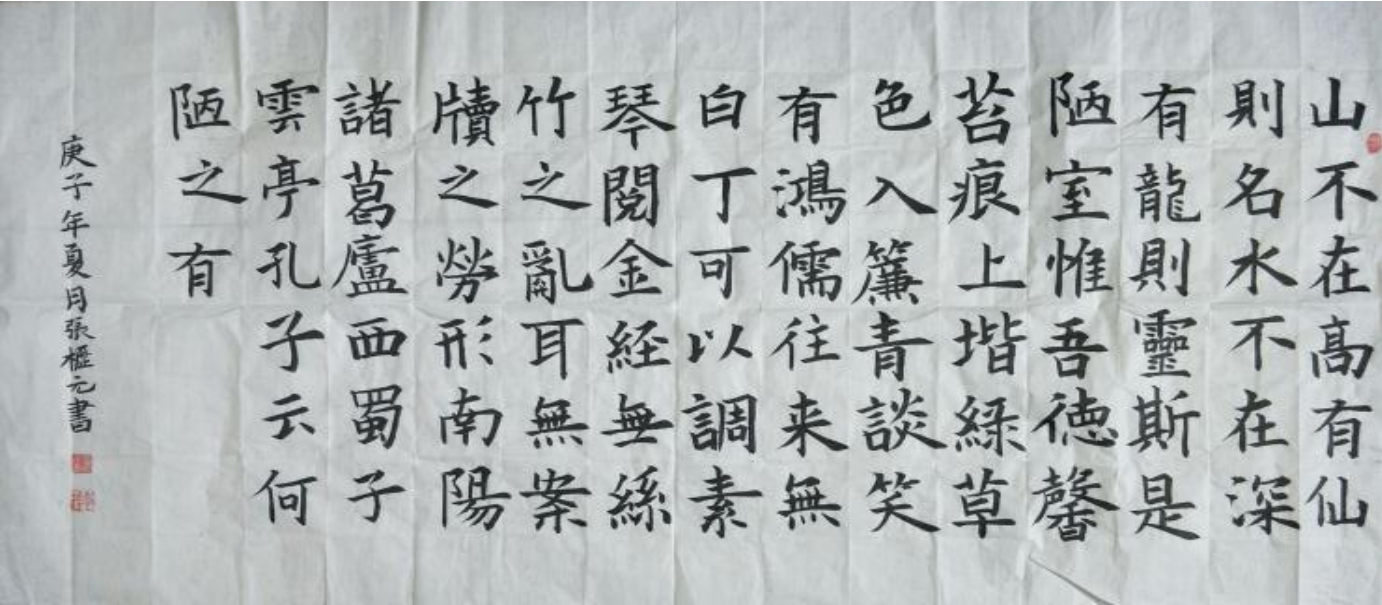 山不在高有仙
則名水不在深
有龍則靈斯是
陋室惟吾德馨
苔痕上堦緑草
色入簾青談笑
有鴻儒往来無
白丁可以調素
琴閲金経無絲
竹之亂耳無案
牘之勞形南陽
諸葛廬西蜀子
雲亭孔子云何
陋之有
庚子年夏月張櫙元書